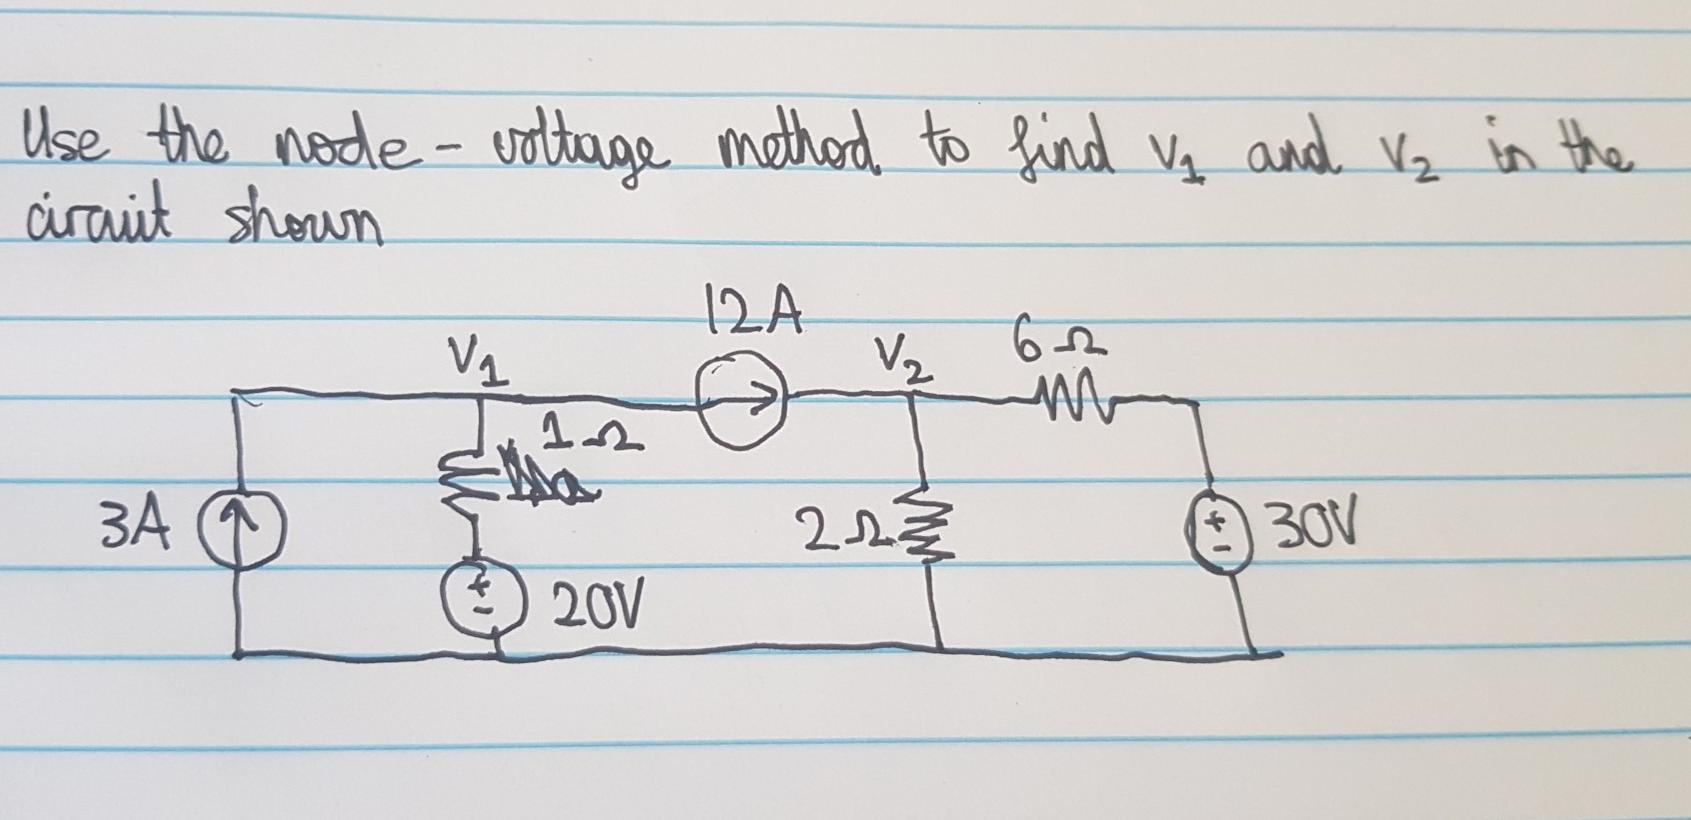 Use the node - voltage method to find V1 and V2 in the
circuit shown
12A
V1
V2
6Ω
1Ω
3A
2Ω
+
-
30V
+
-
20V